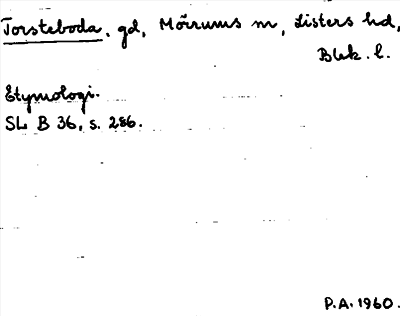 Torsteboda, gd, Mörrums sn, Listers hd,
Blek. l.
Etymologi.
SL B 36, s. 286.
P.A. 1960.